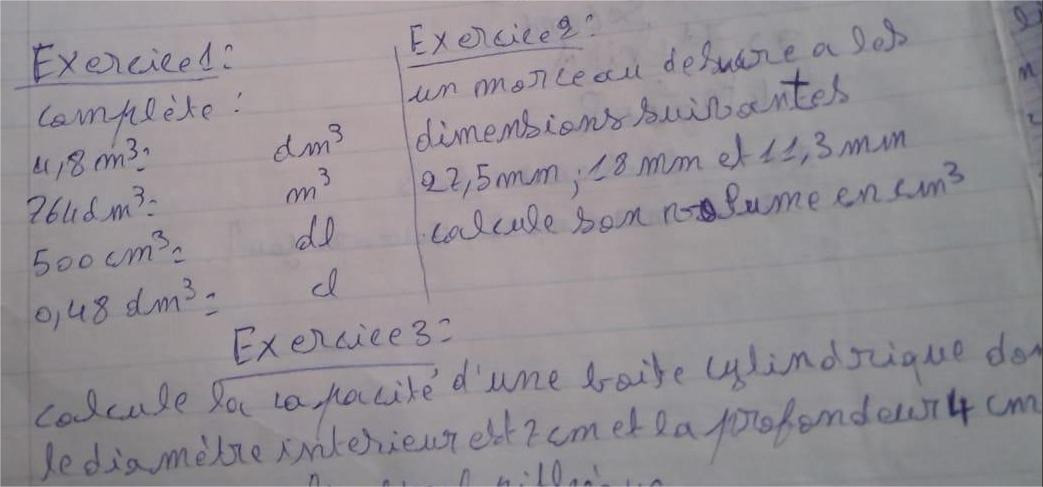 Exercice1:
Complète:
4,8m³= dm³
764dm³= m³
500cm³= dl
0,48dm³= cl
Exercice2:
un morceau desucre a les
dimensions suivantes
27,5mm; 18mm et 11,3mm
calcule son volume en cm³
Exercice3:
calcule la capacité d'une boite cylindrique don
le diamètre interieur est 7cm et la profondeur 4cm